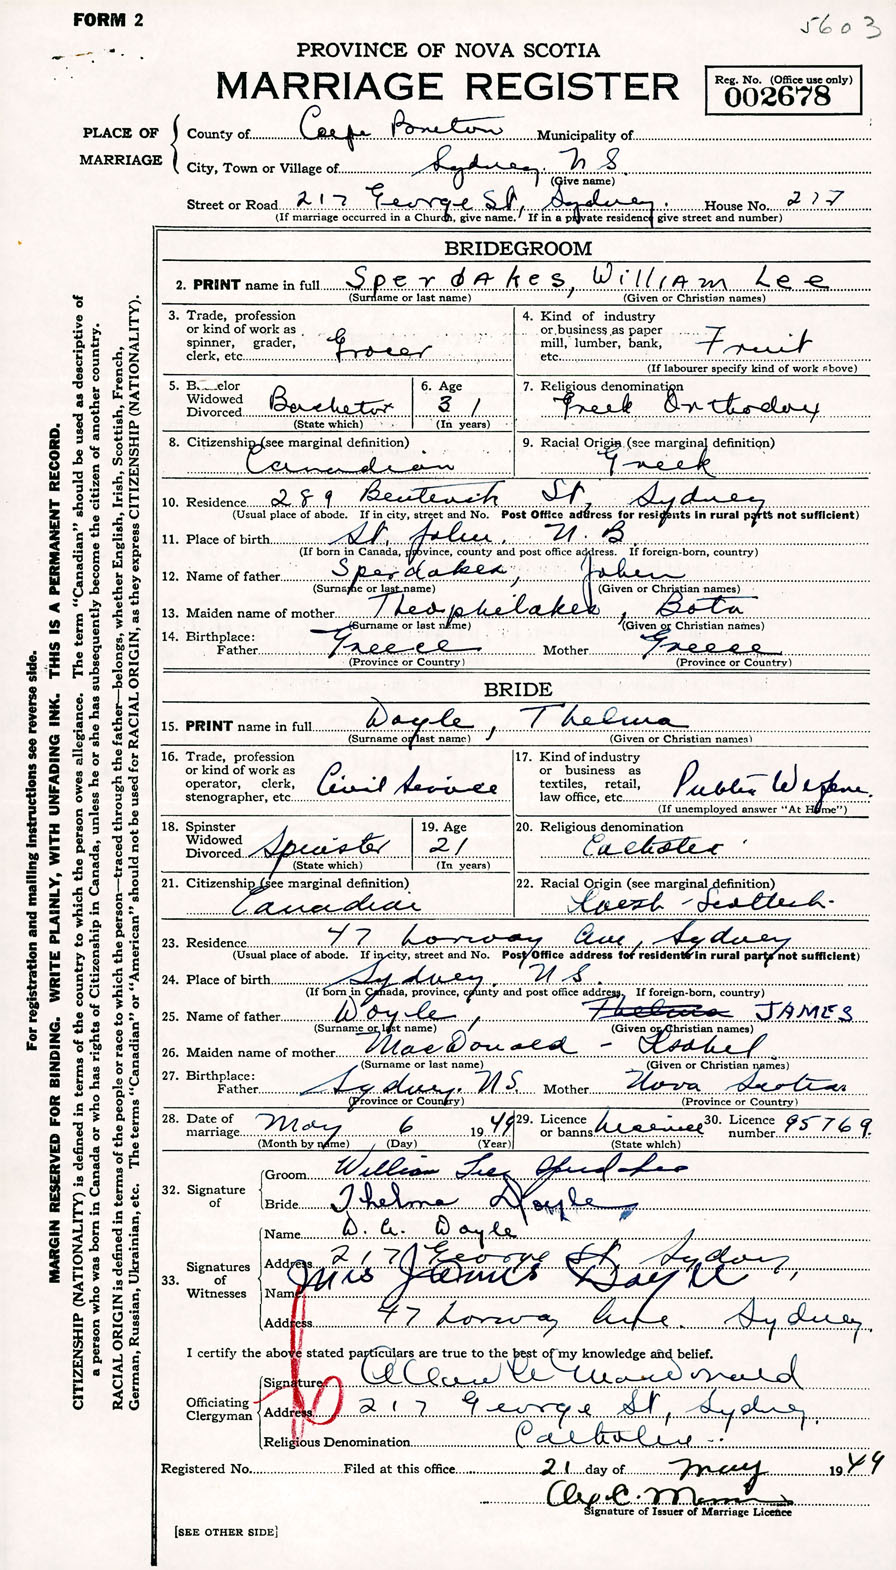 FORM 2
5603
PROVINCE OF NOVA SCOTIA
MARRIAGE REGISTER
Reg. No. (Office use only)
002678
PLACE OF MARRIAGE
County of Cape Breton Municipality of
City, Town or Village of Sydney. N S.
(Give name)
Street or Road 217 George St, Sydney. House No. 217
(If marriage occurred in a Church, give name. If in a private residence give street and number)
BRIDEGROOM
2. PRINT name in full Sperdakes, William Lee
(Surname or last name) (Given or Christian names)
3. Trade, profession or kind of work as spinner, grader, clerk, etc. Grocer
4. Kind of industry or business as paper mill, lumber, bank, etc. Fruit
(If labourer specify kind of work above)
5. B elor Widowed Divorced Bachelor
(State which)
6. Age 31
(In years)
7. Religious denomination Greek Orthodox
8. Citizenship (see marginal definition) Canadian
9. Racial Origin (see marginal definition) Greek
10. Residence 289 St, Sydney
(Usual place of abode. If in city, street and No. Post Office address for residents in rural parts not sufficient)
11. Place of birth St. John. N. B.
(If born in Canada, province, county and post office address. If foreign-born, country)
12. Name of father Sperdakes, John
(Surname or last name) (Given or Christian names)
13. Maiden name of mother Theophilakes, Bota
(Surname or last name) (Given or Christian names)
14. Birthplace: Father Greece Mother Greece
(Province or Country) (Province or Country)
BRIDE
15. PRINT name in full Doyle, Thelma
(Surname or last name) (Given or Christian names)
16. Trade, profession or kind of work as operator, clerk, stenographer, etc. Civil Service
17. Kind of industry or business as textiles, retail, law office, etc. Public Welfare.
(If unemployed answer "At Home")
18. Spinster Widowed Divorced Spinster
(State which)
19. Age 21
(In years)
20. Religious denomination Catholic
21. Citizenship (see marginal definition) Canadian
22. Racial Origin (see marginal definition) - Scottish-
23. Residence 47 Lorway Ave, Sydney
(Usual place of abode. If in city, street and No. Post Office address for residents in rural parts not sufficient)
24. Place of birth Sydney. N S.
(If born in Canada, province, county and post office address. If foreign-born, country)
25. Name of father Doyle, Thelma JAMES
(Surname or last name) (Given or Christian names)
26. Maiden name of mother MacDonald - Isabel.
(Surname or last name) (Given or Christian names)
27. Birthplace: Father Sydney. N S. Mother Nova Scotia
(Province or Country) (Province or Country)
28. Date of marriage May 6 1949
(Month by name) (Day) (Year)
29. Licence or banns License
(State which)
30. Licence number 95769.
32. Signature of
Groom William Lee Sperdakes
Bride Thelma Doyle
33. Signatures of Witnesses
Name D. A. Doyle
Address 217 George St, Sydney,
Name Mrs James Doyle
Address 47 Lorway Ave. Sydney.
I certify the above stated particulars are true to the best of my knowledge and belief.
Officiating Clergyman
Signature MacDonald
Address 217 George St, Sydney.
Religious Denomination Catholic
Registered No. Filed at this office 21 day of May 1949
Alex. C.
Signature of Issuer of Marriage Licence
[SEE OTHER SIDE]
For registration and mailing instructions see reverse side.
MARGIN RESERVED FOR BINDING. WRITE PLAINLY, WITH UNFADING INK. THIS IS A PERMANENT RECORD.
CITIZENSHIP (NATIONALITY) is defined in terms of the country to which the person owes allegiance. The term "Canadian" should be used as descriptive of
a person who was born in Canada or who has rights of Citizenship in Canada, unless he or she has subsequently become the citizen of another country.
RACIAL ORIGIN is defined in terms of the people or race to which the person—traced through the father—belongs, whether English, Irish, Scottish, French,
German, Russian, Ukrainian, etc. The terms "Canadian" or "American" should not be used for RACIAL ORIGIN, as they express CITIZENSHIP (NATIONALITY).